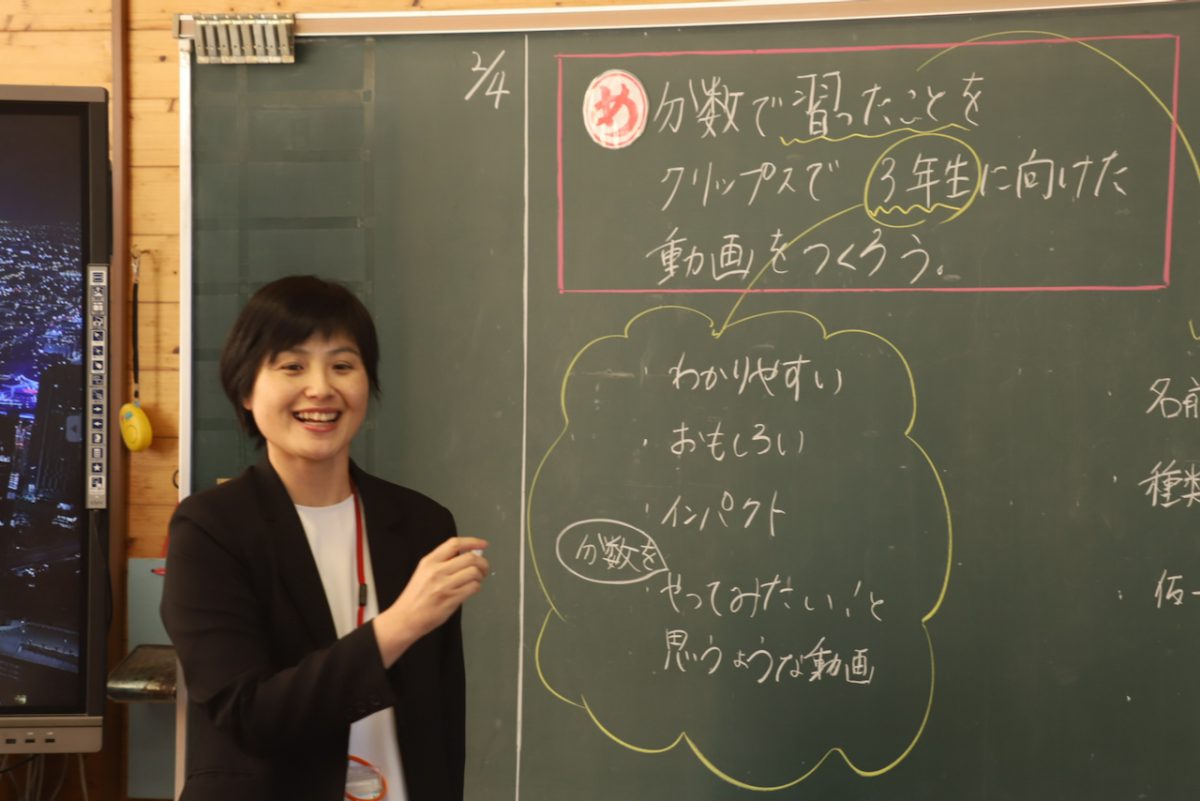 2/4
め
分数で習ったことを
クリップスで3年生に向けた
動画をつくろう。
・わかりやすい
・おもしろい
・インパクト
分数を
・やってみたい!と
思うような動画
・名前
・種類
・仮